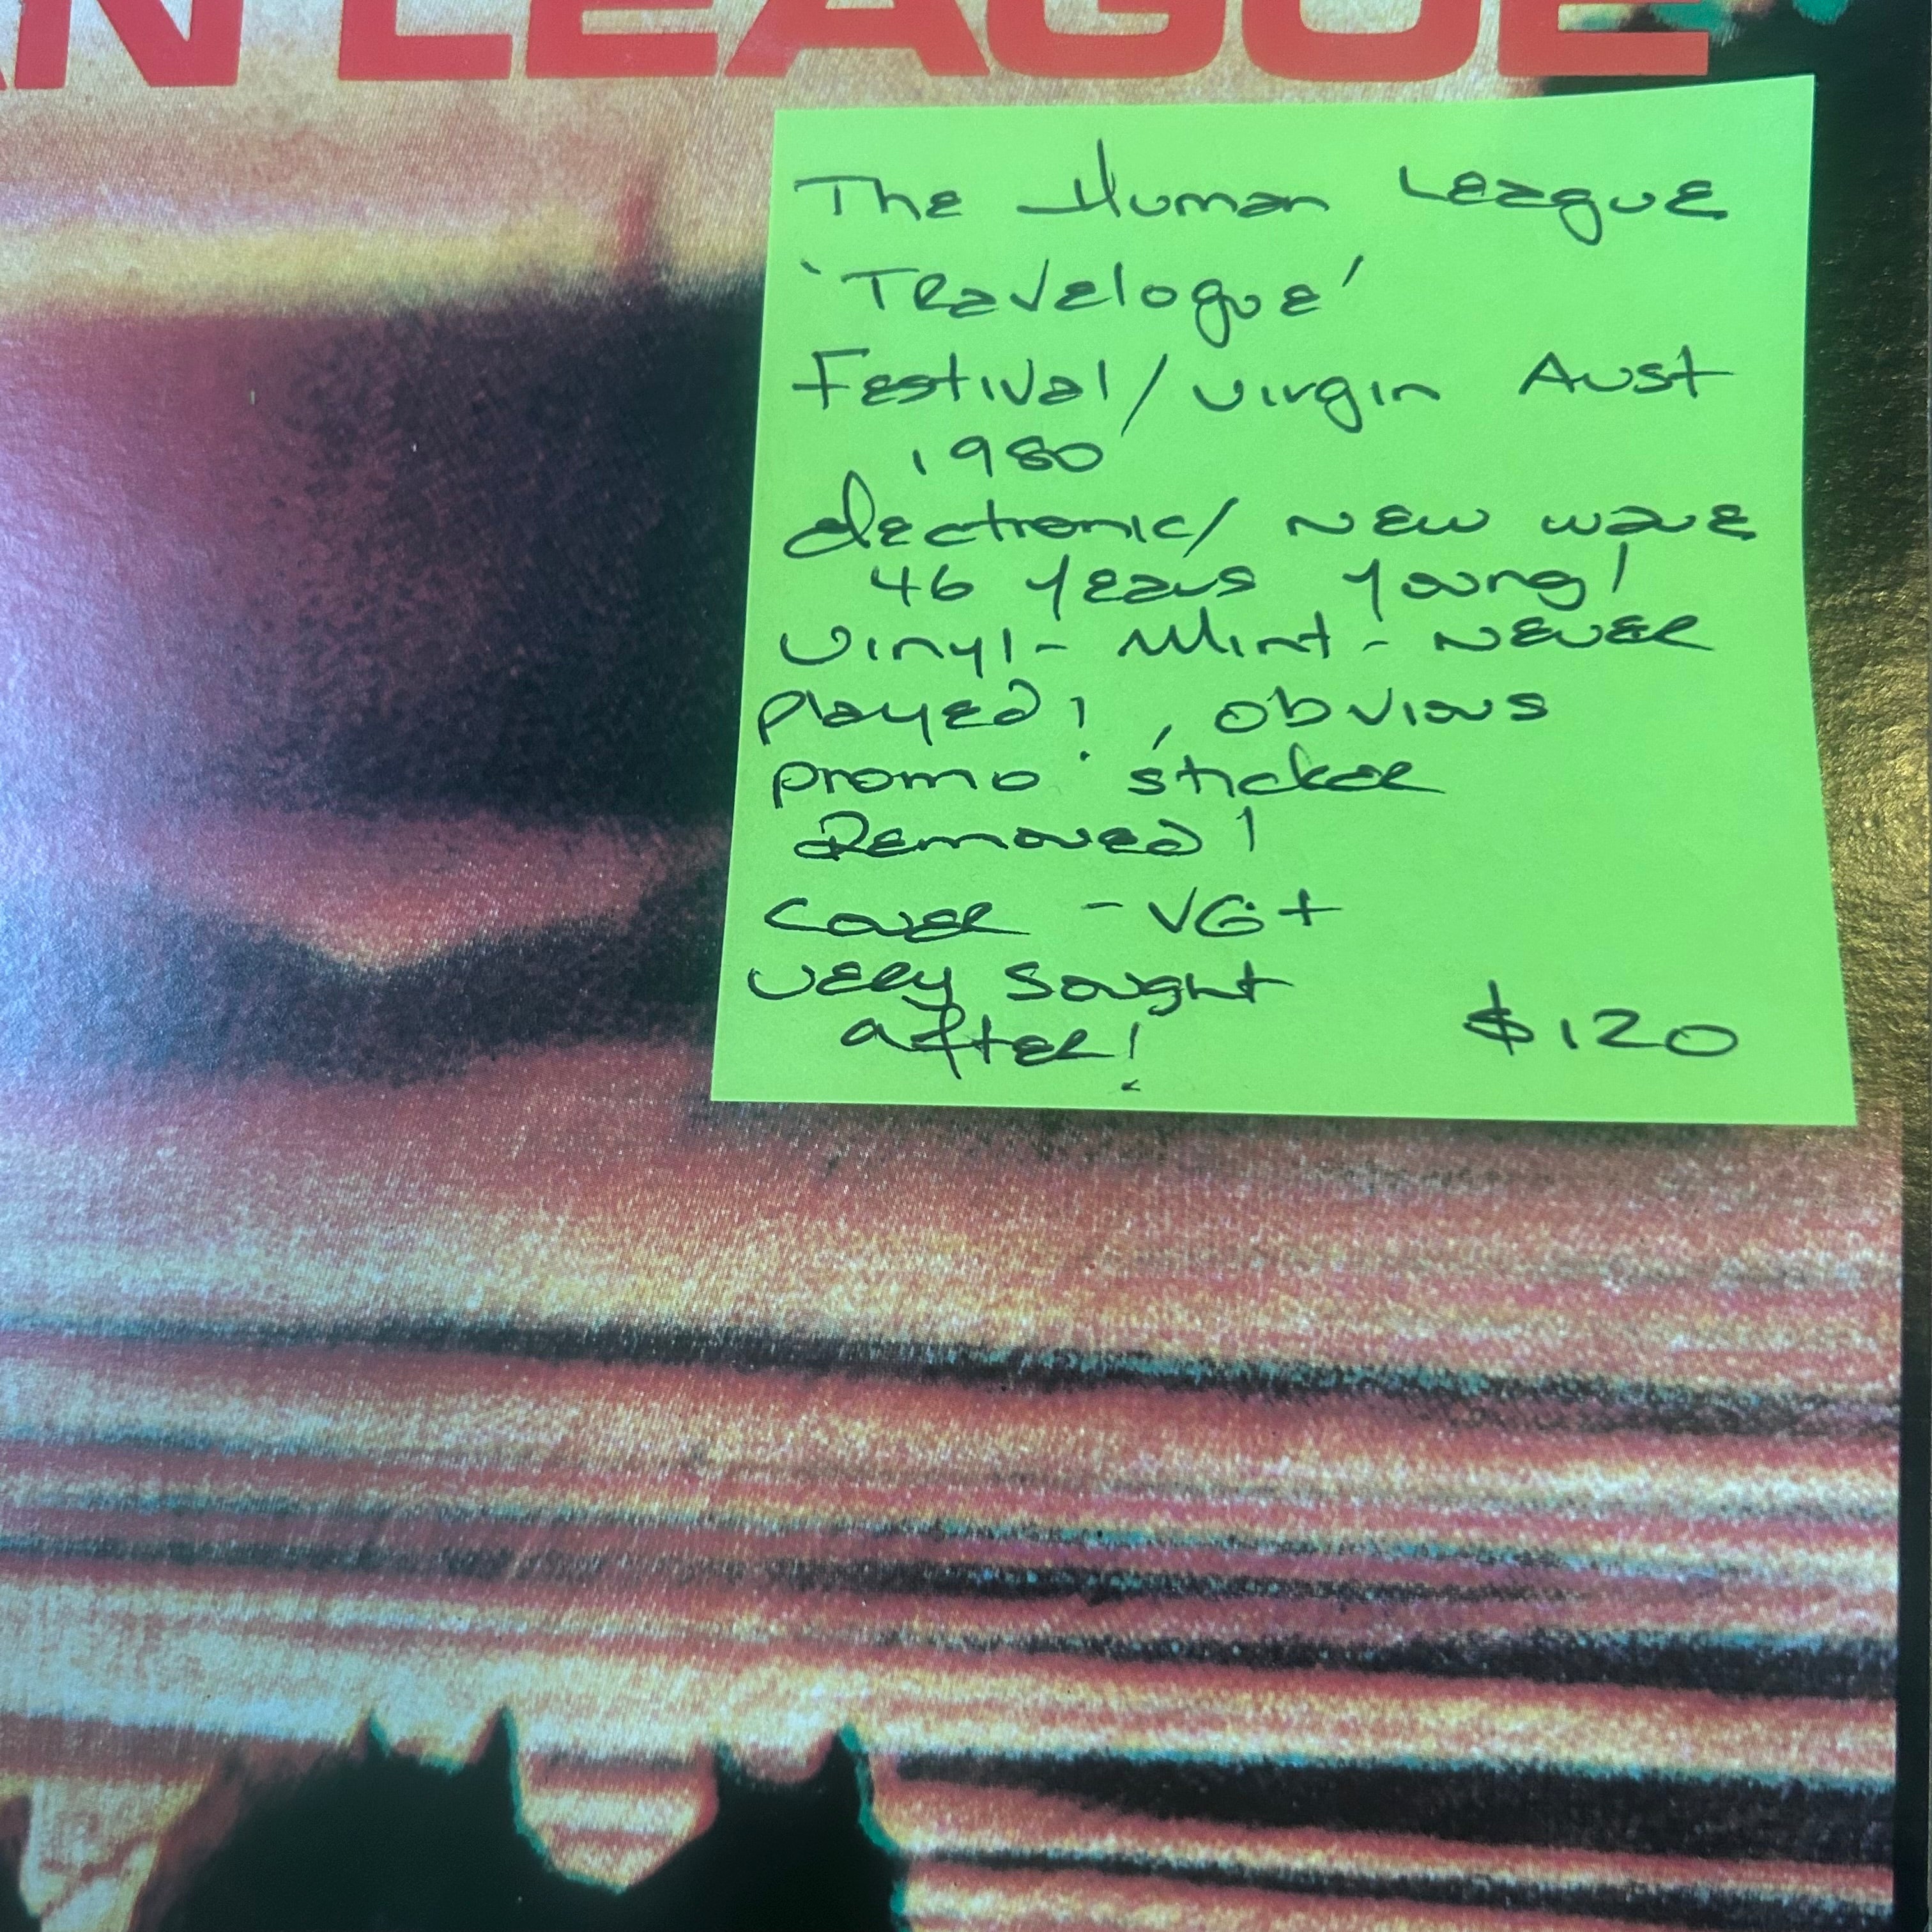 AN LEAGUE
The Human League
'Travelogue'
Festival/Virgin Aust
1980
electronic/ New wave
46 years young!
Vinyl - Mint - Never
played!, obvious
promo sticker
Removed!
Cover - VG+
Very sought
after! $120